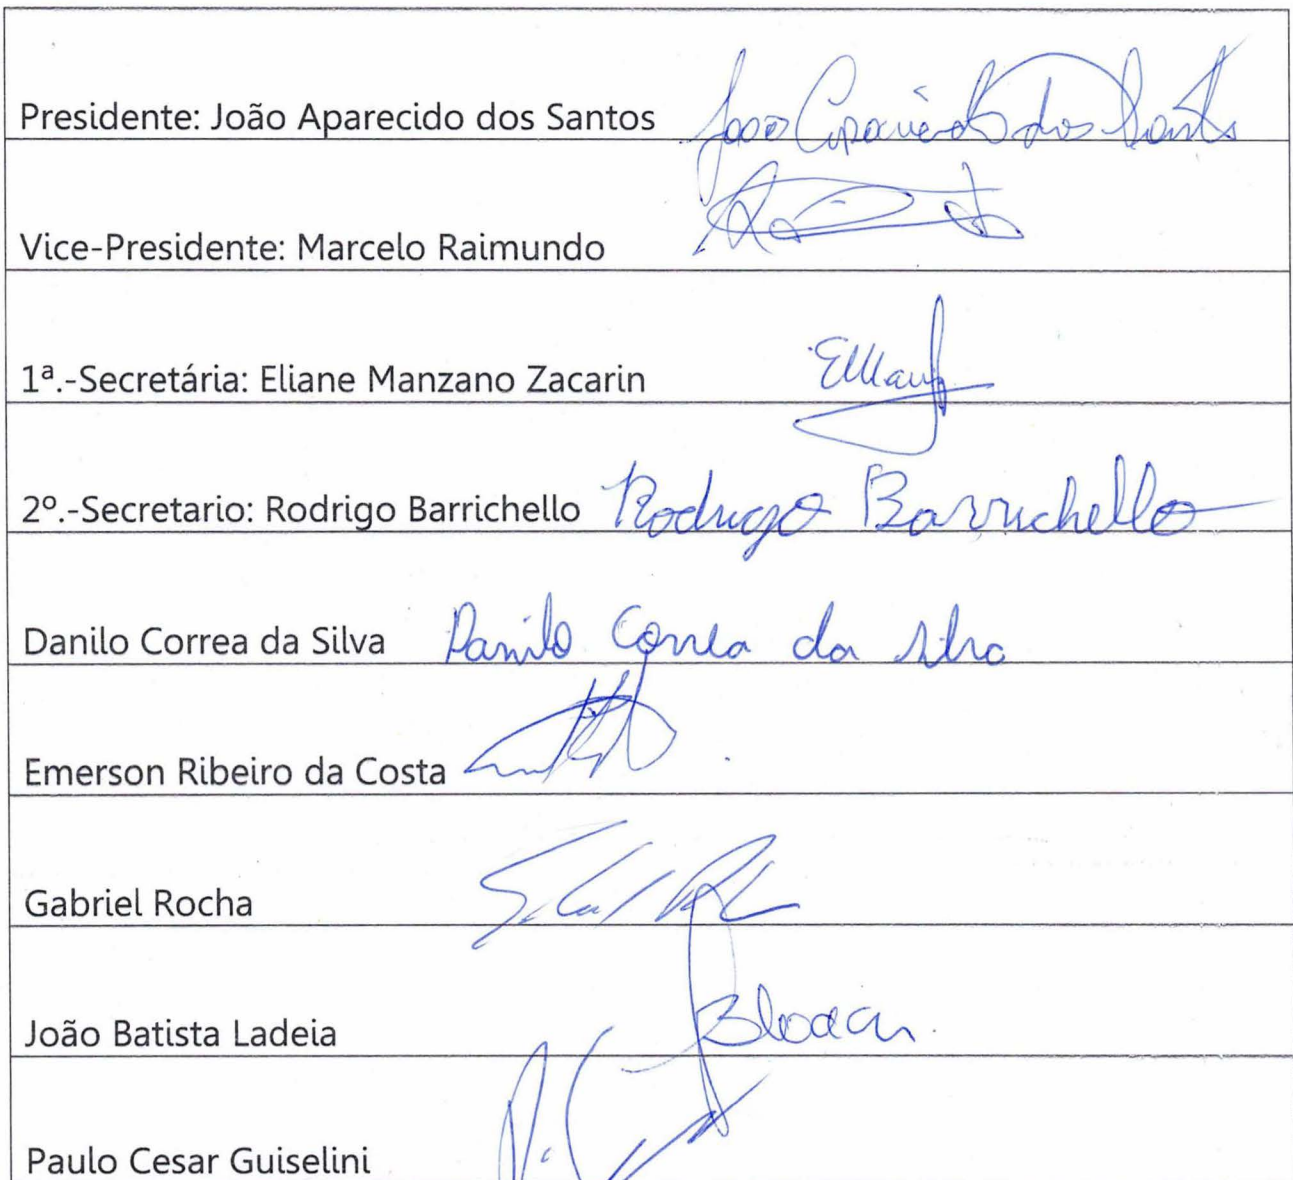 Presidente: João Aparecido dos Santos João Aparecido dos Santos
Vice-Presidente: Marcelo Raimundo
1ª.-Secretária: Eliane Manzano Zacarin
2º.-Secretario: Rodrigo Barrichello Rodrigo Barrichello
Danilo Correa da Silva Danilo Correa da Silva
Emerson Ribeiro da Costa
Gabriel Rocha
João Batista Ladeia
Paulo Cesar Guiselini